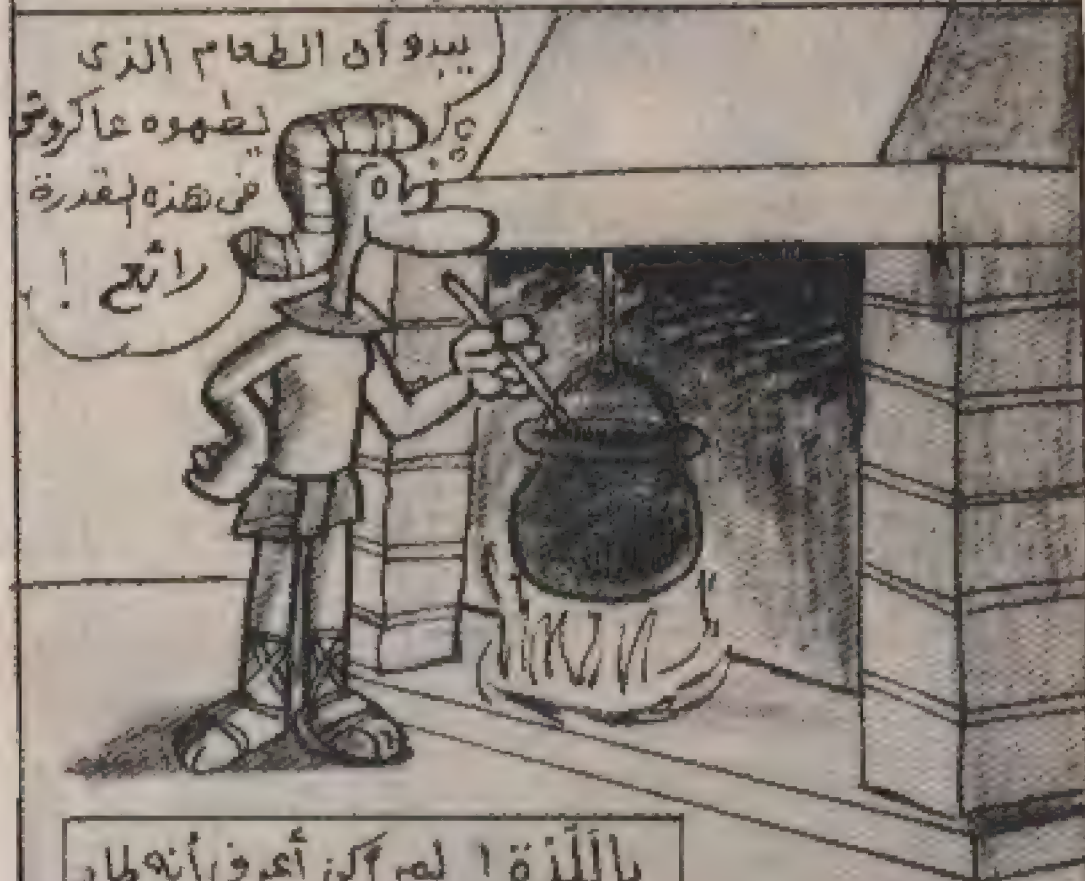 يبدو أن الطعام الذى
يطهوه عاكروش
فى هذه القدرة
رائع !
ياللّذة ! لم أكن أعرف أنه طاه